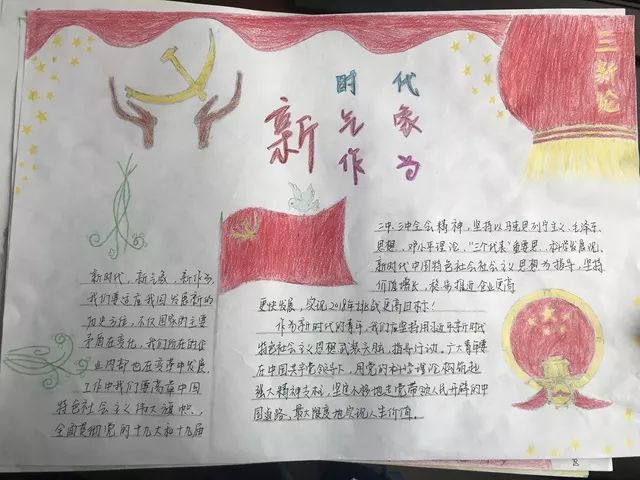 三新论
新
时代
气象
作为
新时代、新气象、新作为
我们要适应我国发展新的
历史方位,不仅国家的主要
矛盾在变化,我们所在的企
业内部也在变革中发展,
工作中我们要高举中国
特色社会主义伟大旗帜,
全面贯彻党的十九大和十九届
二中、三中全会精神,坚持以马克思列宁主义、毛泽东
思想、邓小平理论、"三个代表"重要思想、科学发展观、
新时代中国特色社会社会主义思想为指导,坚持
价值增长,稳步推进企业更高
更快发展,实现2018年挑战更高目标!
作为新时代的青年,我们应坚持用习近平新时代
特色社会主义思想武装头脑,指导行动。广大青年要
在中国共产党领导下,用党的科学理论构筑起
强大精神支柱,坚定不移地走党带领人民开辟的中
国道路,最大限度地实现人生价值。